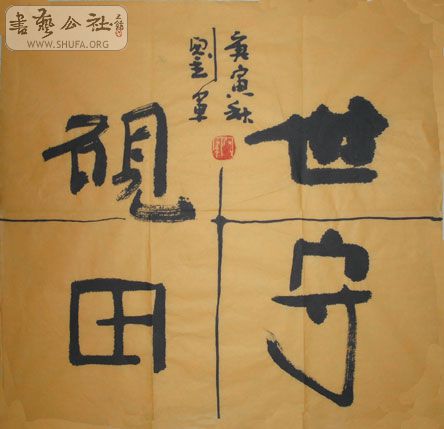 世守
硯田
庚寅秋
書藝公社
WWW.SHUFA.ORG